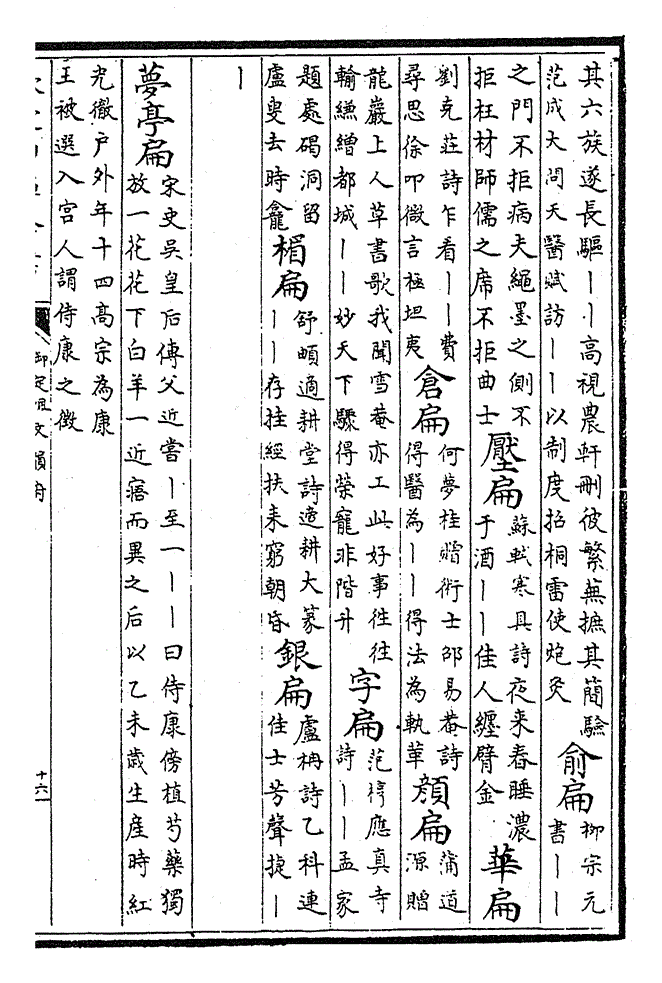 其六族遂長驅丨丨高視農軒刪彼繁蕪摭其簡驗
范成大問天醫賦訪丨丨以制度招桐雷使炮灸
俞扁
柳宗元
書丨丨
之門不拒病夫繩墨之側不
拒枉材師儒之席不拒曲士
壓扁
蘇軾寒具詩夜来春睡濃
于酒丨丨佳人纏臂金
華扁
劉克莊詩乍看丨丨費
尋思徐叩微言極坦夷
倉扁
何夢桂贈術士邵易菴詩
得醫為丨丨得法為軌革
顔扁
蒲道
源贈
龍巖上人草書歌我聞雪菴亦工此好事徃徃
輸縑繒都城丨丨妙天下驟得榮寵非階升
字扁
范梈應真寺
詩丨丨孟家
題處碣洞留
盧叟去時龕
楣扁
舒頔適耕堂詩適耕大篆
丨丨存挂經扶耒窮朝昏
銀扁
盧柟詩乙科連
佳士芳聲捷丨
丨
夢亭扁
宋史吳皇后傳父近嘗丨至一丨丨曰侍康傍植芍藥獨
放一花花下白羊一近寤而異之后以乙未歲生産時紅
光徹户外年十四高宗為康
王被選入宫人謂侍康之徵
御定佩文韻府
十六